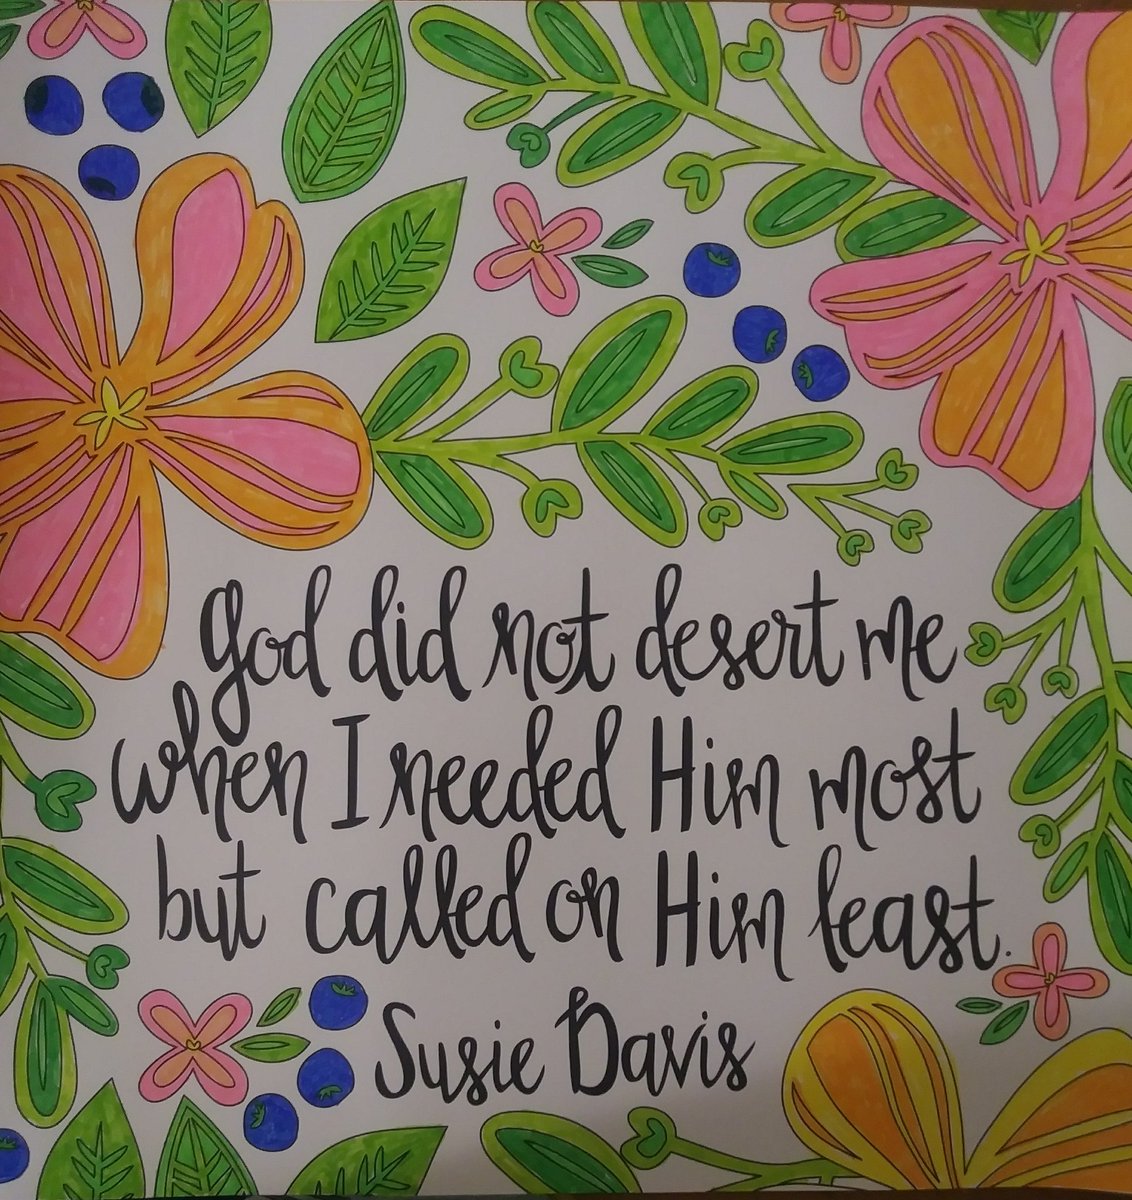 God did not desert me
when I needed Him most
but called on Him least.
Susie Davis